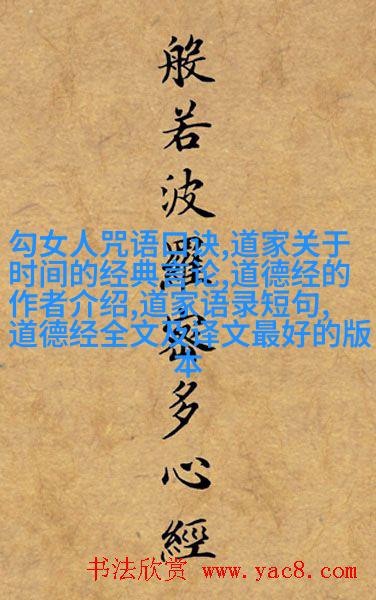 般若波羅蜜多心經
勾女人咒语口诀,道家关于
时间的经典言论,道德经的
作者介绍,道家语录短句,
道德经全文及译文最好的版
本
书法欣赏 www.yac8.com